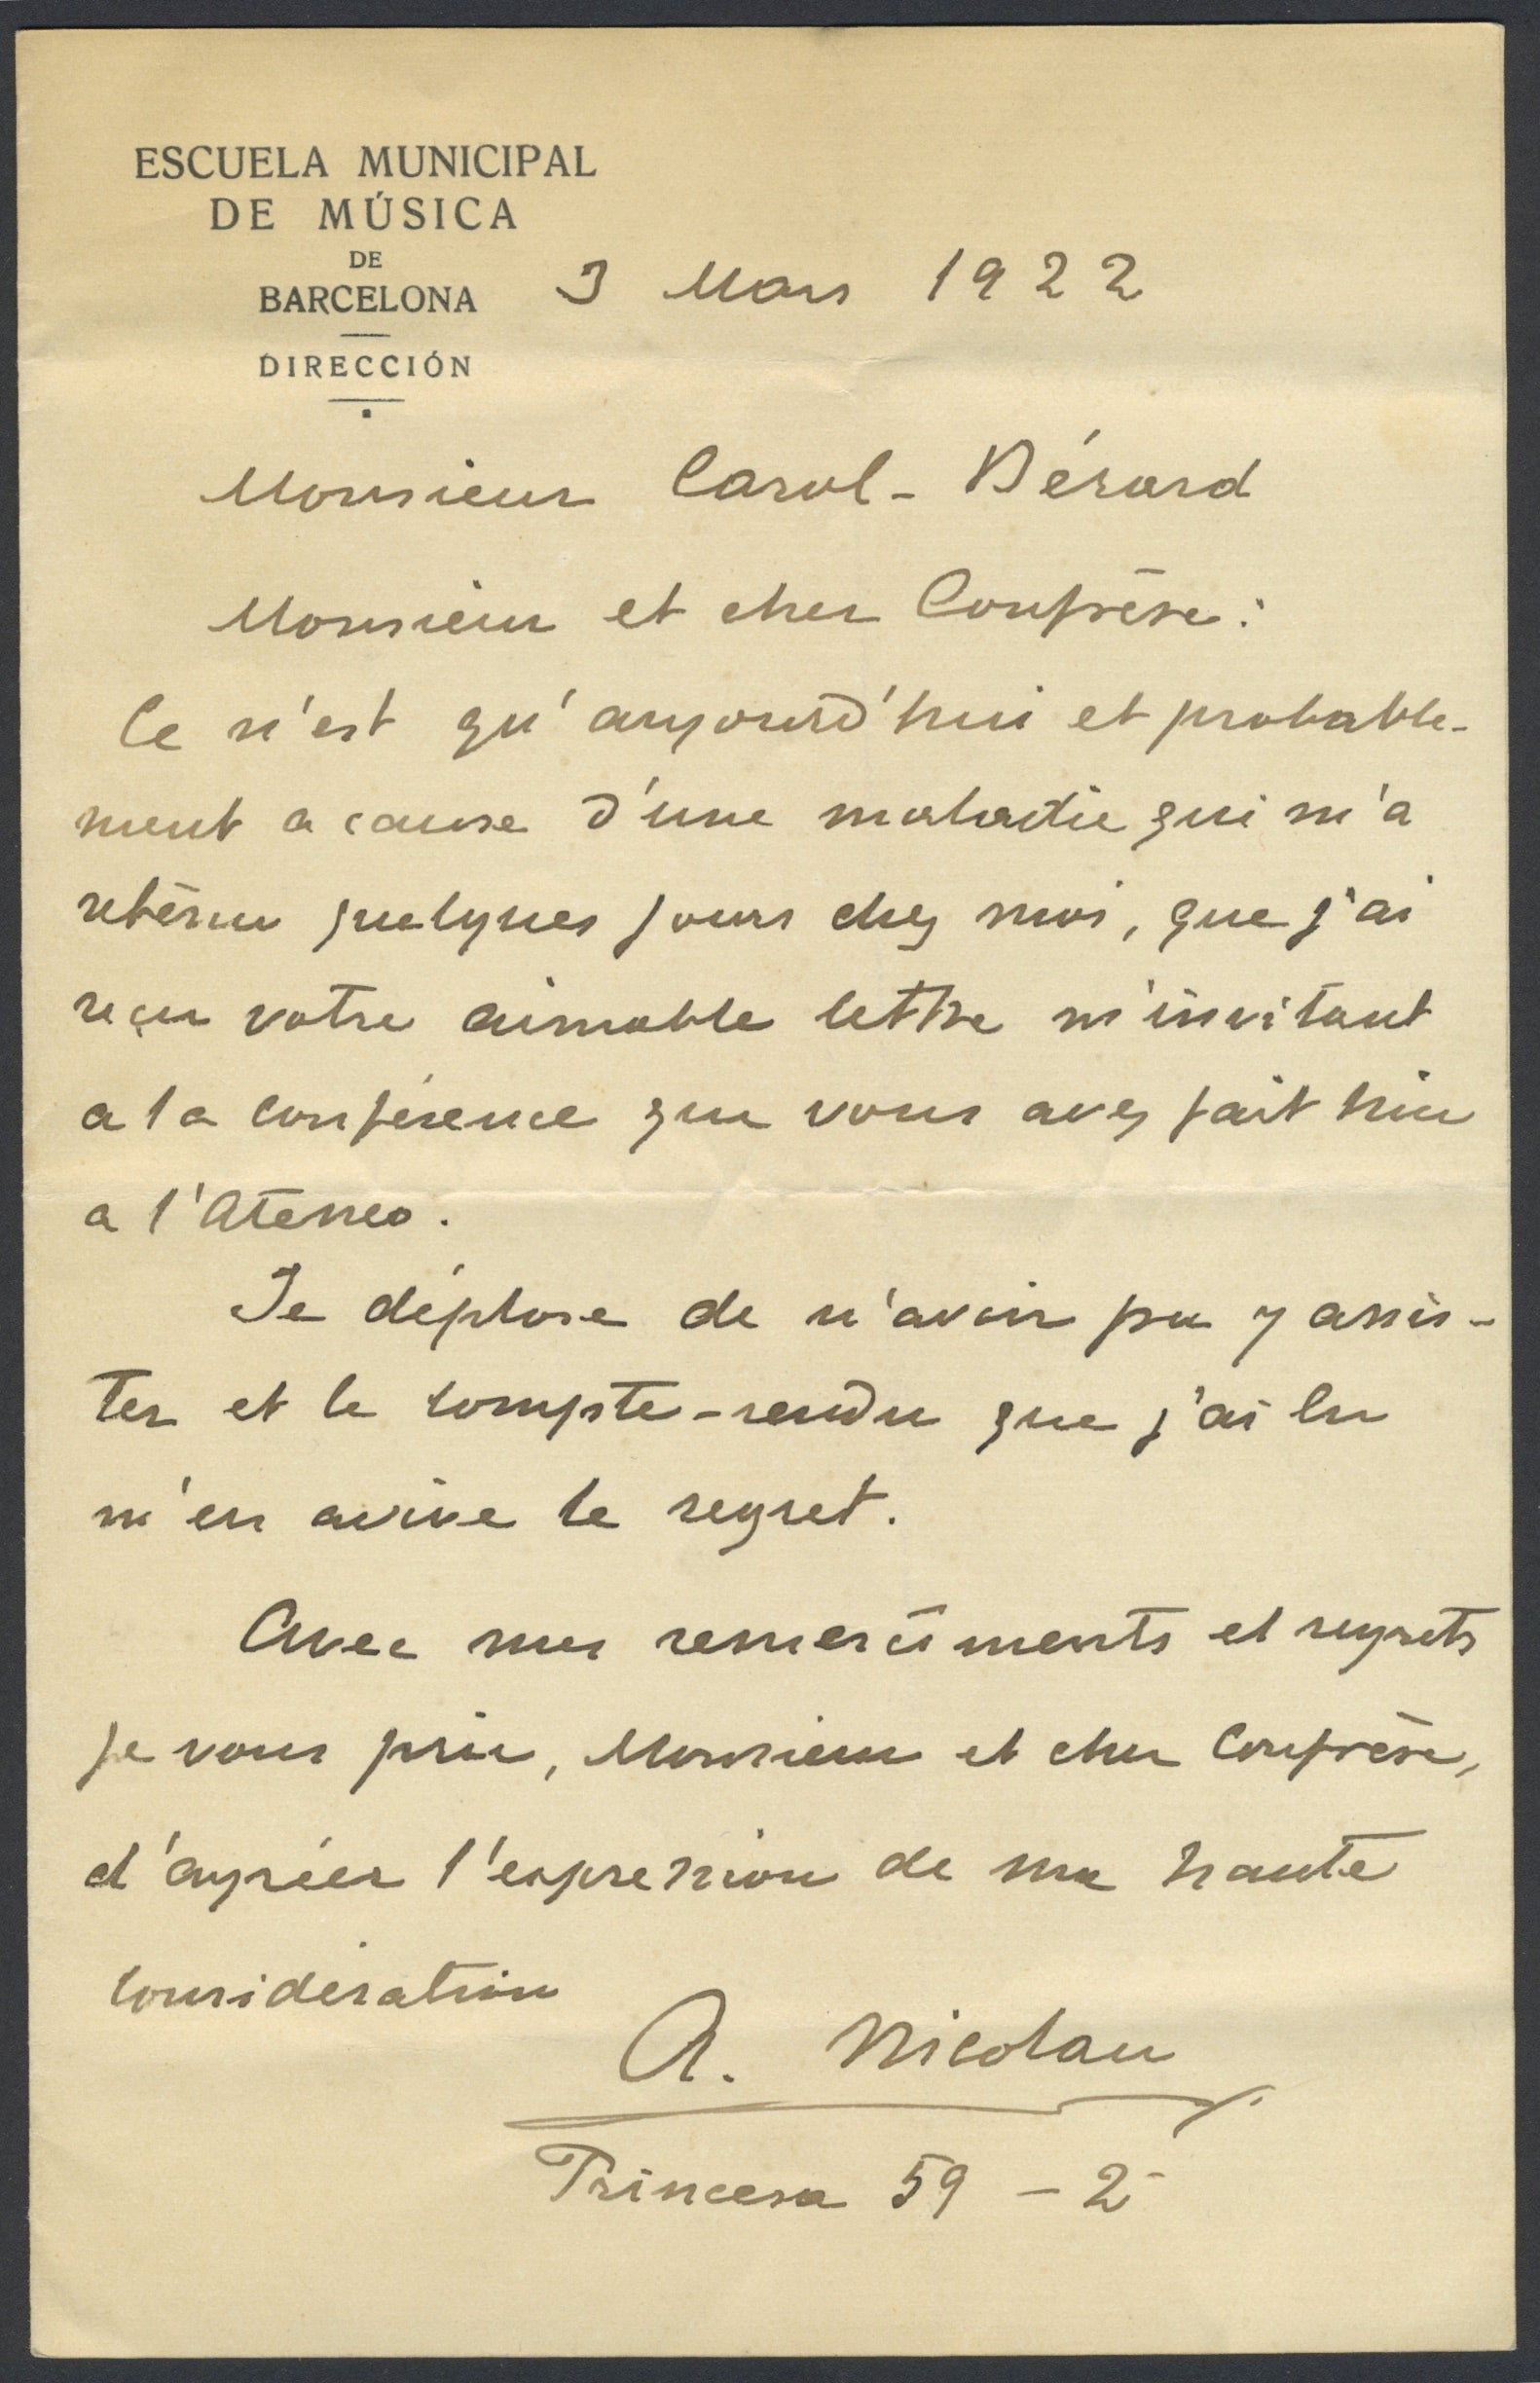 ESCUELA MUNICIPAL
DE MÚSICA
DE
BARCELONA
DIRECCIÓN
3 Mars 1922
Monsieur Carol-Bérard
Monsieur et cher Confrère:
Ce n'est qu'aujourd'hui et probable-
ment a cause d'une maladie qui m'a
retenu quelques jours chez moi, que j'ai
reçu votre aimable lettre m'invitant
a la conférence que vous avez fait hier
a l'Ateneo.
Je déplore de n'avoir pu y assis-
ter et le compte-rendu que j'ai lu
m'en avive le regret.
Avec mes remerciments et regrets
je vous prie, Monsieur et cher Confrère,
d'agréer l'expression de ma haute
considération
A. Nicolau
Princesa 59 - 2